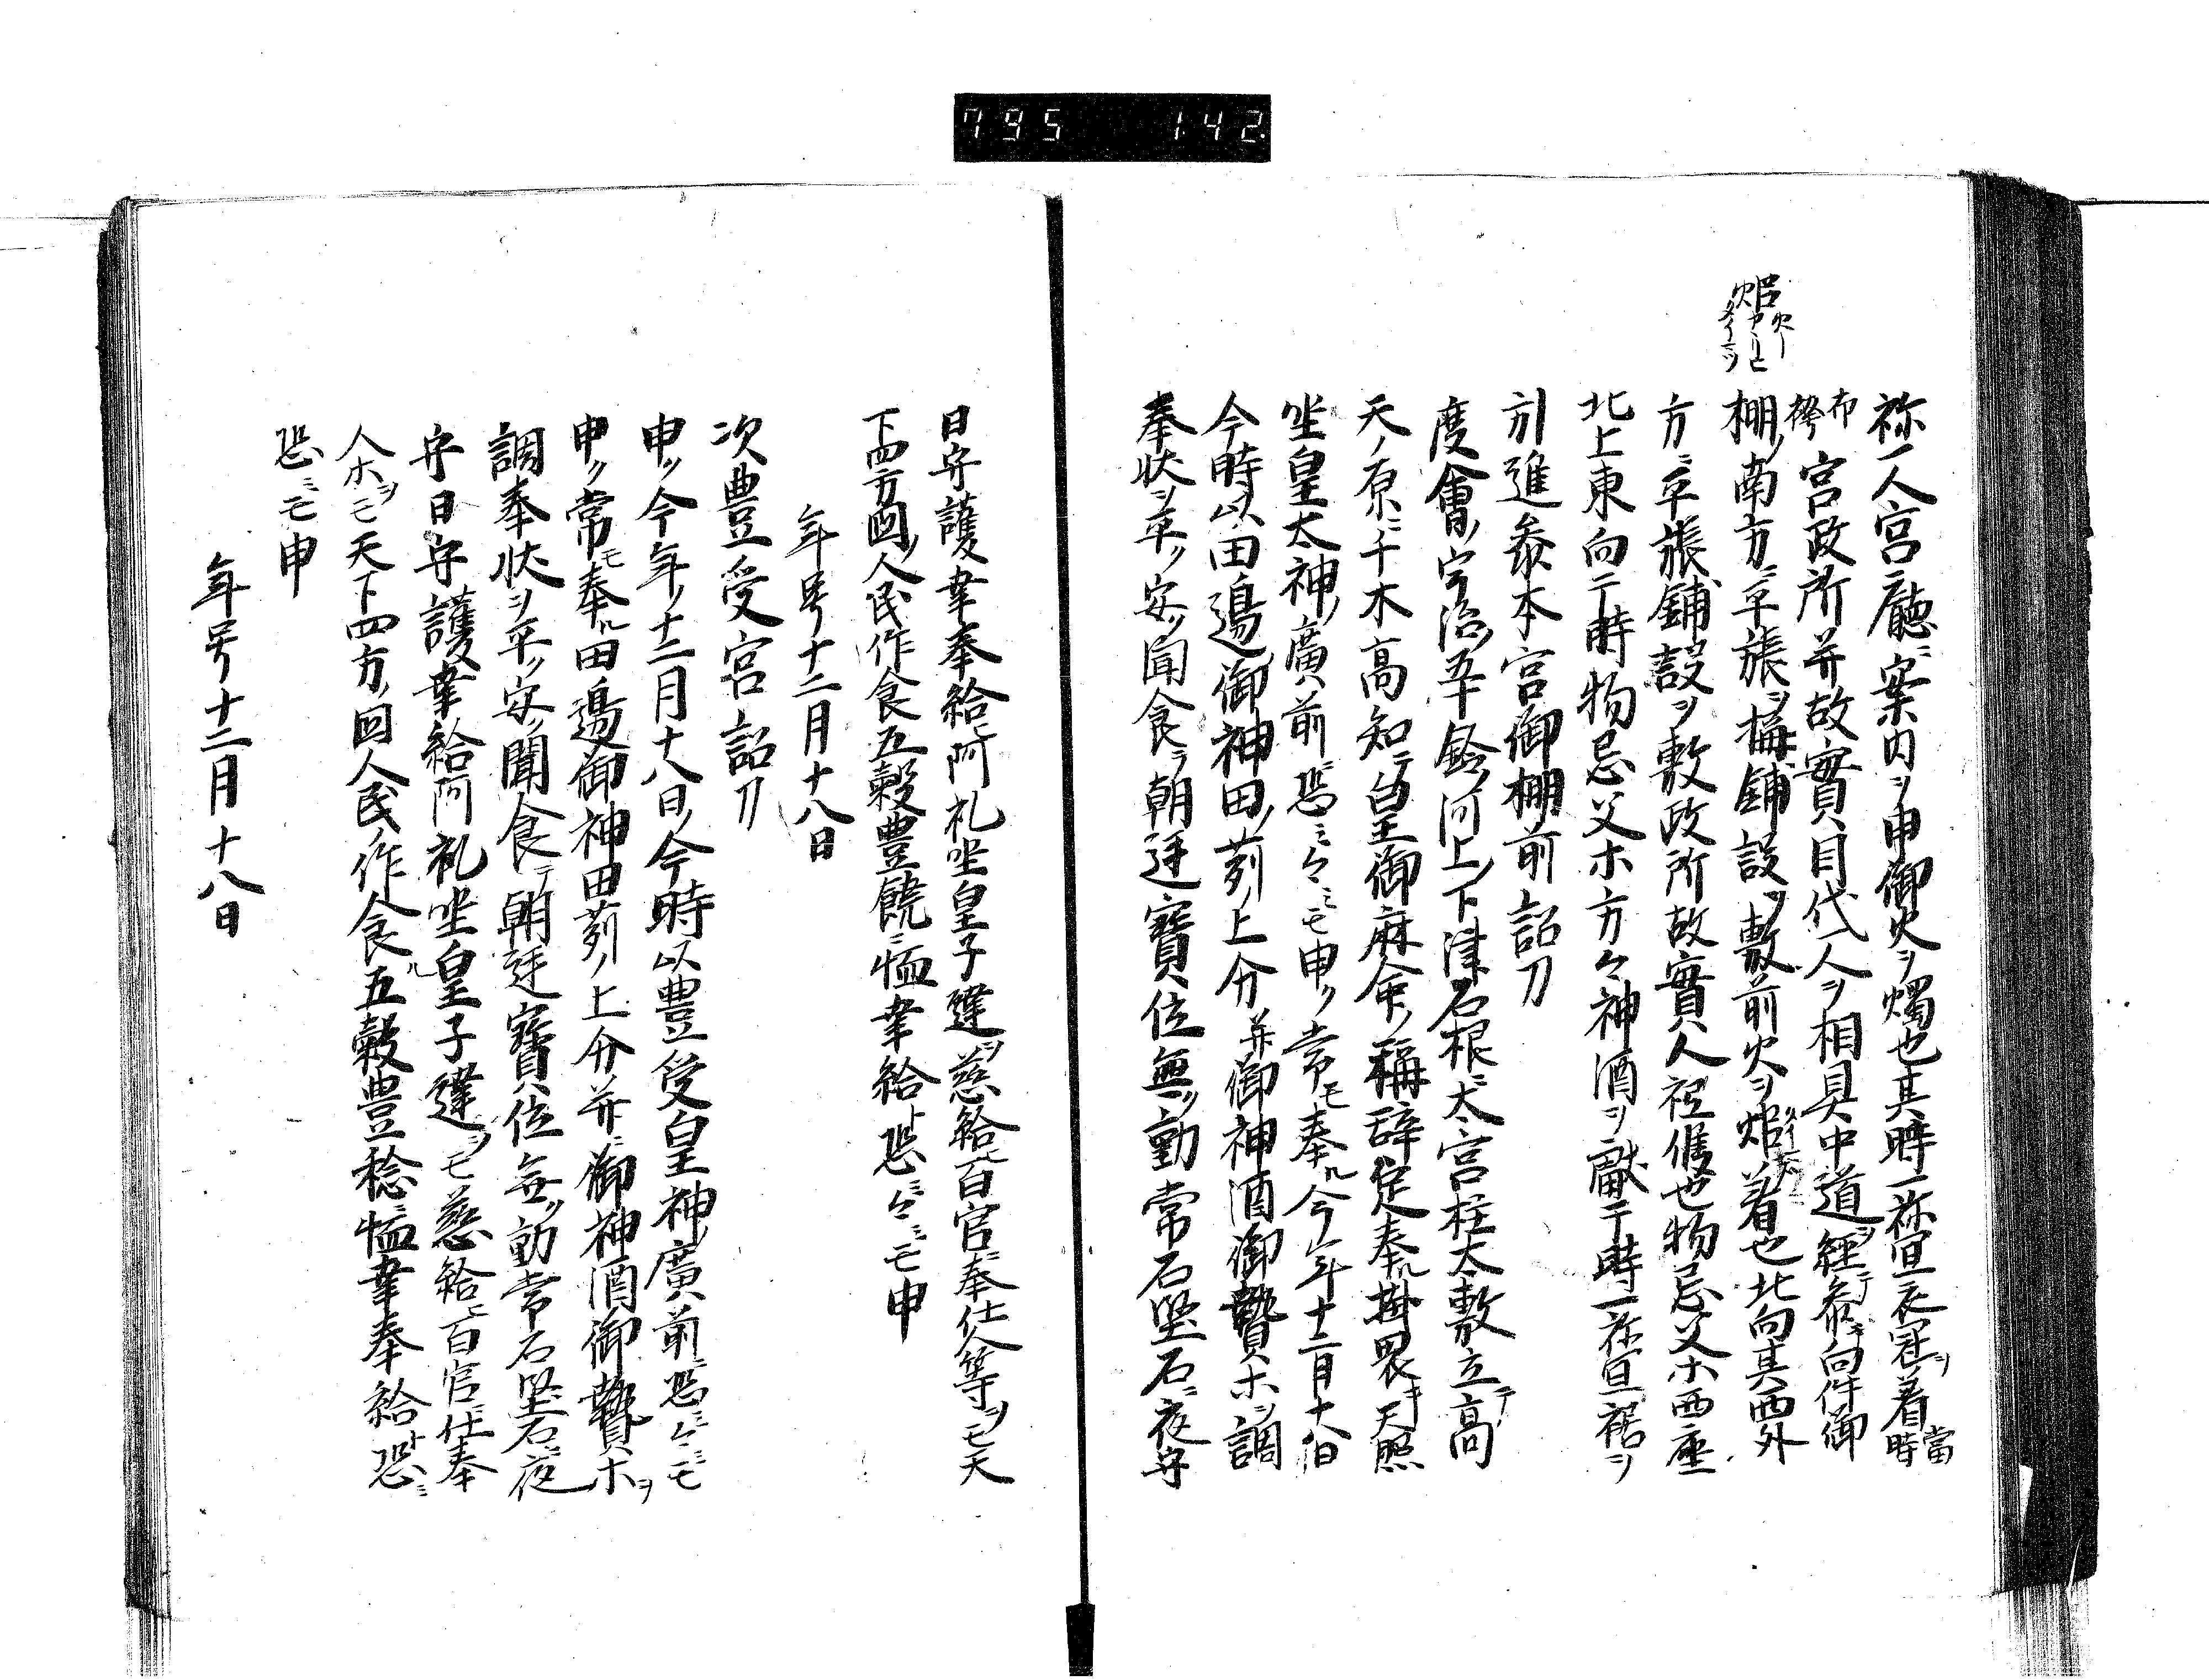 795 142
焒
祢一人宮廳ニ案内ヲ申御火ヲ燭也其時一祢宜衣冠ヲ着當時
布袴宮政所并故實目代人ヲ相具中道ヲ經テ参テ向件御
棚ノ南方ニ平張ヲ構鋪設ヲ敷前火ヲ焒着也北向其西外
方ニ平張鋪設ヲ敷政所故實人祗候也物忌父ホ西座
北上東向于時物忌父ホ方々神酒ヲ獻于時一祢宜裾ヲ
引進参本宮御棚前詔刀
度會ノ宇治五十鈴ノ河上ノ下津石根ニ大宮柱太敷立テ高
天ノ原ニ千木高知テ皇御麻命ノ稱辞定奉ル掛畏キ天照
坐皇太神ノ廣前ニ恐ミ々ミモ申ク常モ奉ル今年十二月十八日
今時以田邉御神田ノ苅ノ上分并御神酒御贄ホヲ調
奉状ヲ平ク安ク聞食シテ朝廷寳位無ク動常石堅石ニ夜守
日守護幸奉給阿礼坐皇子達ヲ慈給ヒ百官ニ奉仕人等ヲモ天
下四方國ノ人民作食五穀豊饒ニ恤幸給ト恐ミ々ミモ申
年号十二月十八日
次豊受宮詔刀
申ク今年ノ十二月十八日ノ今時以豊受皇神ノ廣前ニ恐ミ々ミモ
申ク常モ奉ル田邉御神田苅ノ上分并ニ御神酒御贄ホヲ
調奉状ヲ平ク安ク聞食テ朝廷寳位無ク動常石堅石ニ夜
守日守護幸給阿礼坐皇子達ヲモ慈給ヒ百官ニ仕奉
人ホヲモ天下四方ノ國人民ノ作食ル五穀豊稔ニ恤幸奉給ト恐ミ
恐ミモ申
年号十二月十八日